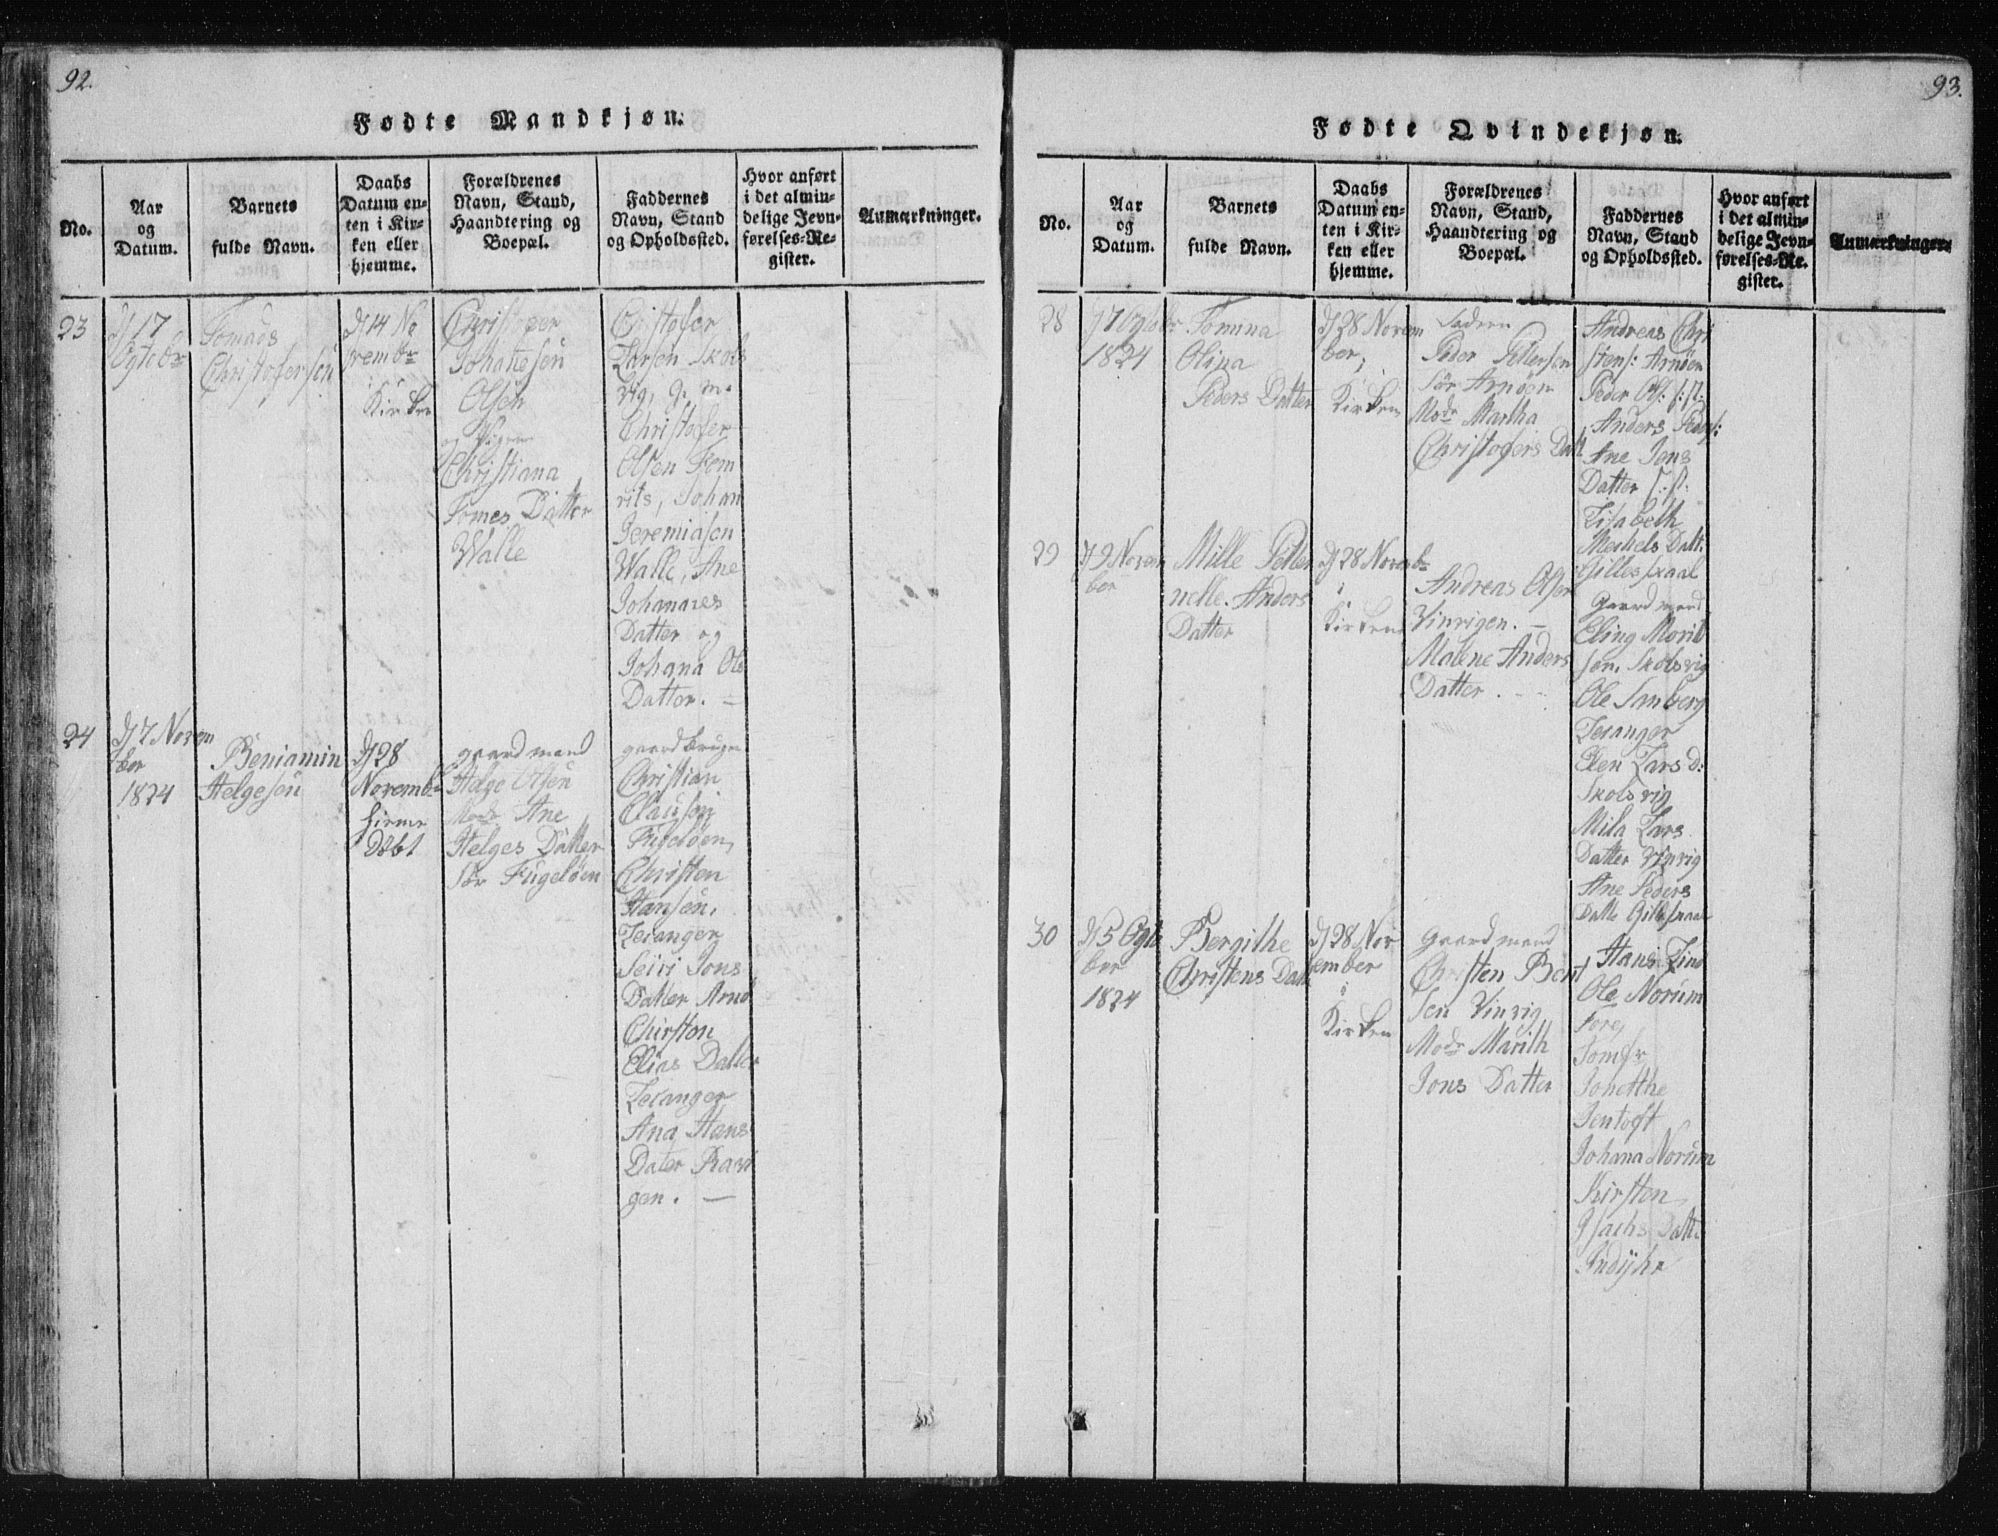 92.
Fødte Mandkjøn.
No.
Aar
og
Datum.
Barnets
fulde Navn.
Daabs
Datum en-
ten i Kir-
ken eller
hjemme.
Forældrenes
Navn, Stand,
Haandtering og
Boepæl.
Faddernes
Navn, Stand
og Opholdssted.
Hvor anført
i det almin-
delige Jevn-
førelses-Re-
gister.
Anmærkninger.
23
17
Ogtobr
Tomads
Christofersen
14 No
vembr
i
Kirken
Christofer
Johanesen
Olsen
og Pigen
Christiana
Tomes Datter
Walle
Cristofer
Larsen Skols
vig, g. m.
Christofer
Olsen Fem
rits, Johan
Jeremiasen
Walle, Ane
Johannes
Datter og
Johana Ole
Datter. –
24
7 Novem
ber
1824
Beniamin
Helgesen
28
Novembr
hieme
døbt
gaardmand
Helge Olsen
Modr Ane
Helges Datter
Sør Fugeløen
gaardbruger
Christian
Clausen
Fugeløen,
Christen
Hansen,
Leranger
Seiri Jons
Datter Arnø
Chirsten
Elias Datter
Leranger
Ana Hans
Dater
gen. –
93.
Fødte Qvindekjøn.
No.
Aar
og
Datum.
Barnets
fulde Navn.
Daabs
Datum en-
ten i Kir-
ken eller
hjemme.
Forældrenes
Navn, Stand,
Haandtering og
Boepæl.
Faddernes
Navn, Stand
og Opholdssted.
Hvor anført
i det almin-
delige Jevn-
førelses-Re-
gister.
Anmærkninger
28
17 Ogtobr
1824
Tomina
Olina
Peders Datter
28 Novem
ber,
i
Kirken
Faderen
Peder Pettersen
Sør Arnøen
Modr Martha
Christofers Datt
Andreas Chri
stens: Arnøen
Peder Ols:
Anders Peders:
Ane Jens
Datter
Lisabeth
Mechels Datt.
Gillesskaal
29
9 Novem
ber
Mille Petter
nelle. Anders
Datter
28 Novembr
i
Kirken
Andreas Olsen
Vinvigen. –
Malene Anders
Datter.
Gaardmand
Eling Morits
sen. Skolsvig
Ole Sanberg
Leranger
Elen Lars d:
Skolsvig
Mila Lars
Datter Vinvig
Ane Peders
Datte Gillesskaal
30
5 Ogto
ber
1824
Bergithe
Christens Datt
28 Nov
ember
i
Kirken
Gaardmand
Christen Bent
sen Vinvig
Modr Marith
Jons Datter
Hans Lind
Ole Norum
Fore
Jomfr
Jonetthe
Jentoft
Johana Norum
Kirsten
Isachs Datt
Indyhr